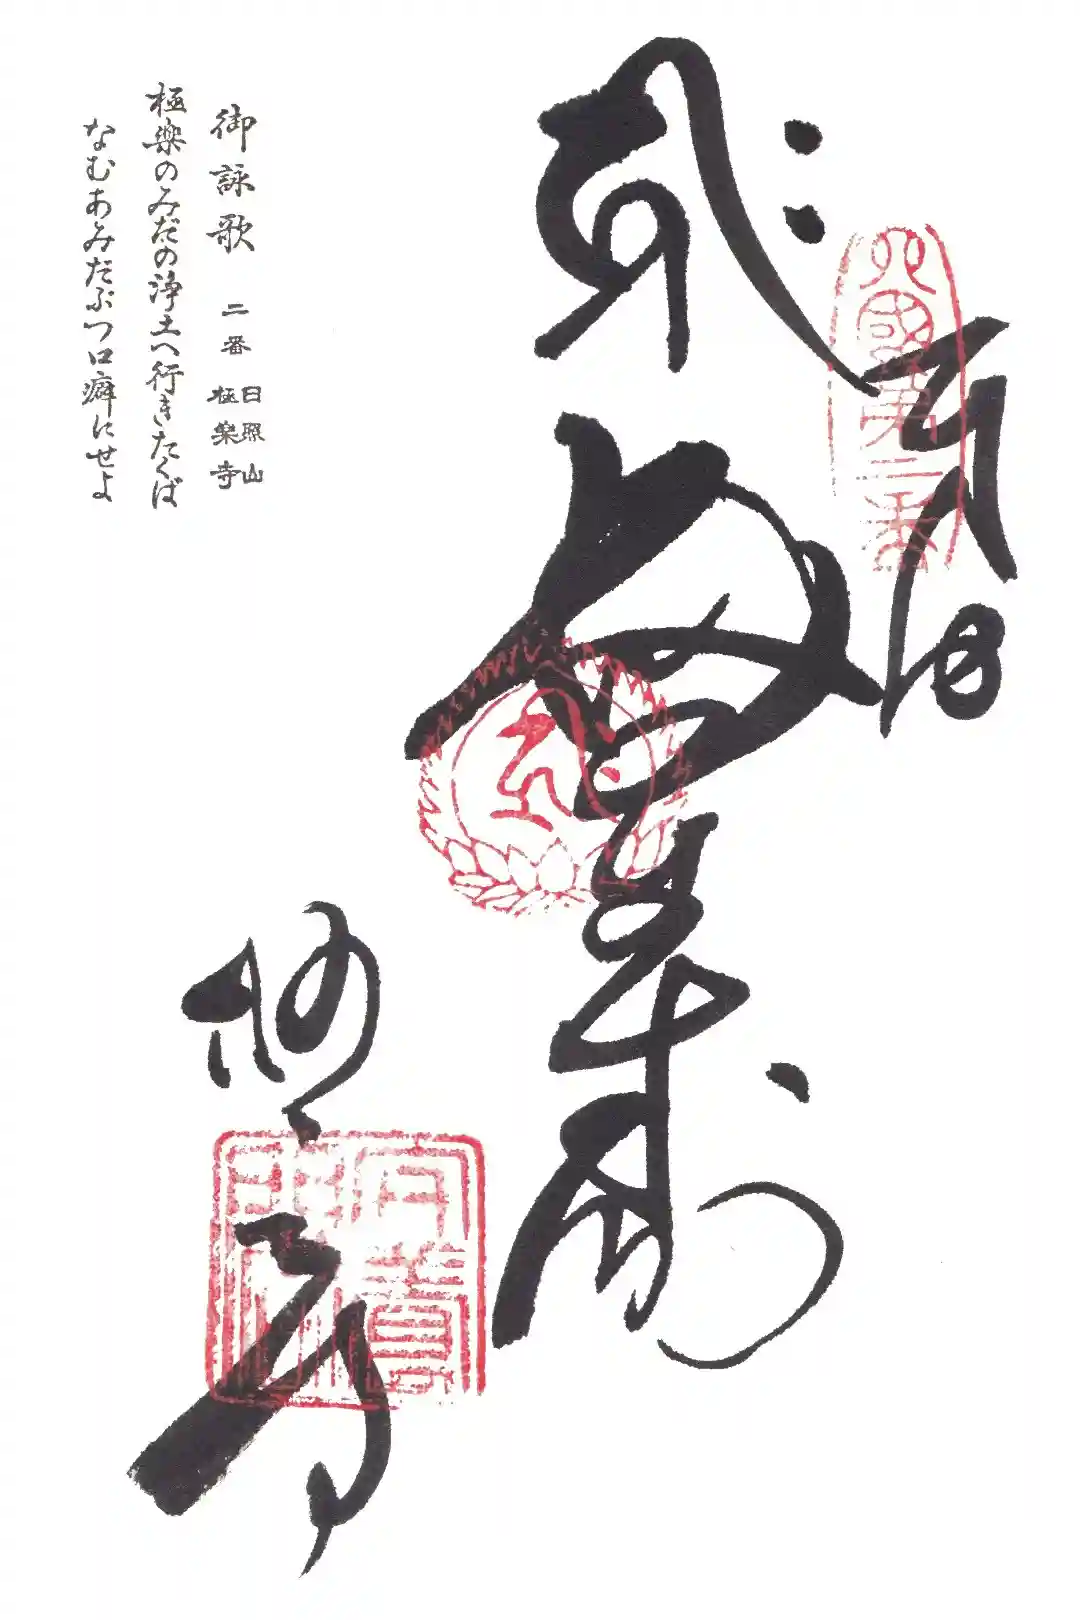 四國第二番
ह्रीः 無量寿
極楽寺
御詠歌 二番 日照山 極楽寺
極楽のみだの浄土へ行きたくば
なむあみだぶつ口癖にせよ